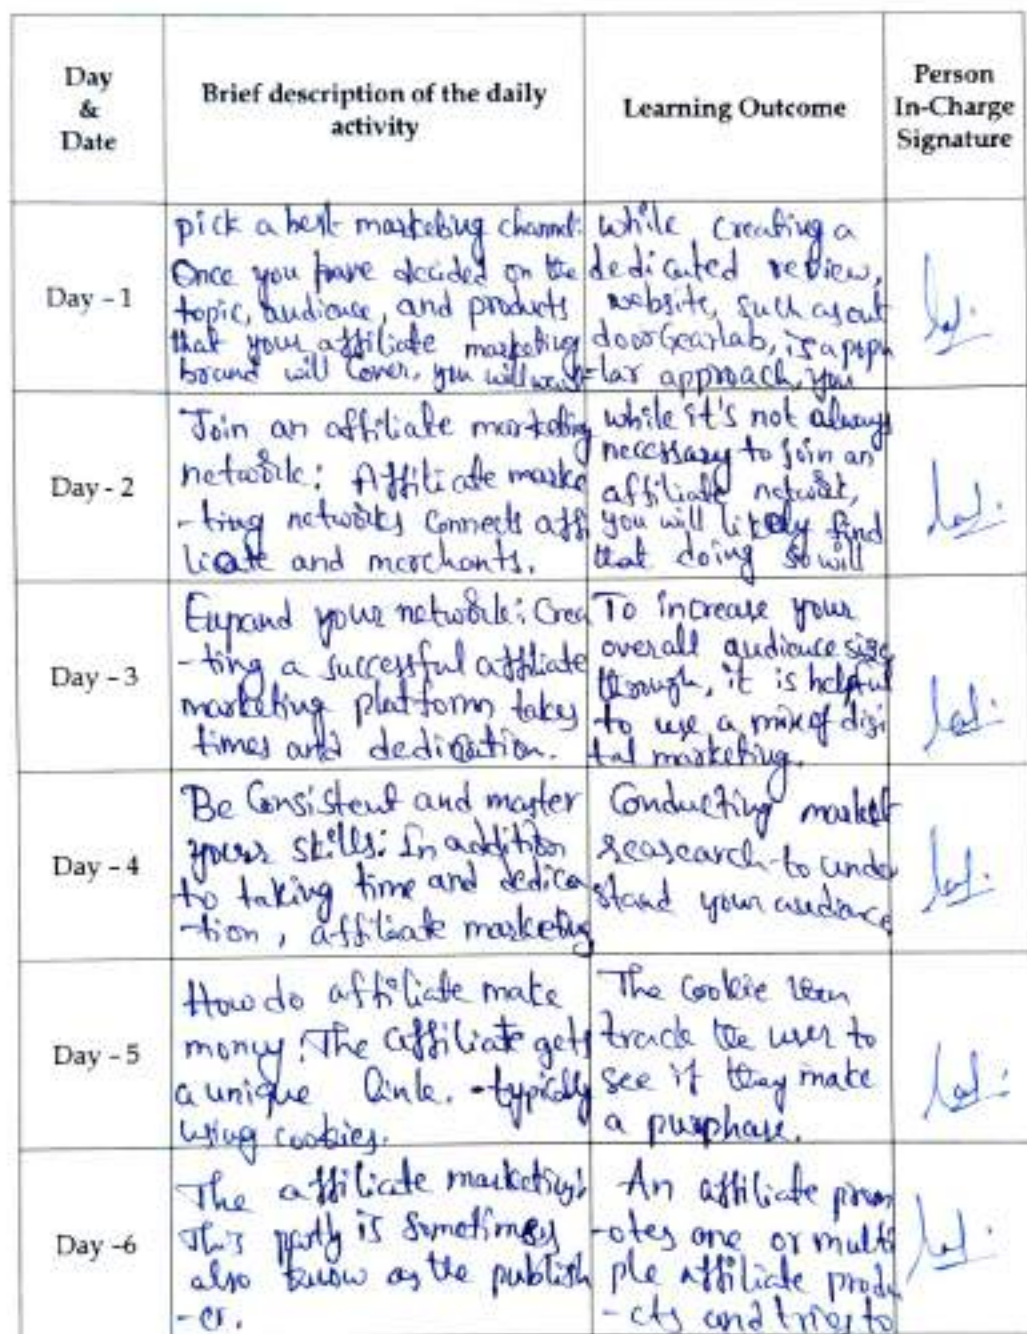 Day
&
Date
Brief description of the daily
activity
Learning Outcome
Person
In-Charge
Signature
Day - 1
pick a best marketing channel:
Once you have decided on the
topic, audience, and products
that your affiliate marketing
brand will cover, you will
while creating a
dedicated review,
website, such as out
doorGearlab, is a popu
-lar approach, you
Day - 2
Join an affiliate marketing
network: Affiliate marke
-ting networks connects affi
liate and merchants.
while it's not always
necessary to join an
affiliate network,
you will likely find
that doing so will
Day - 3
Expand your network: Crea
-ting a successful affiliate
marketing platform takes
times and dedication.
To increase your
overall audience size
through, it is helpful
to use a mix of digi
tal marketing.
Day - 4
Be Consistent and master
your skills: In addition
to taking time and dedica
-tion, affiliate marketing
Conducting market
to under
stand your audience
Day - 5
How do affiliate make
money: The affiliate gets
a unique link. -typically
using cookies.
The Cookie
track the user to
see if they make
a purphase.
Day -6
The affiliate marketing:
This partly is Sometimes
also know as the publish
-er.
An affiliate prom
-otes one or multi
ple affiliate produ
-cts and tries to